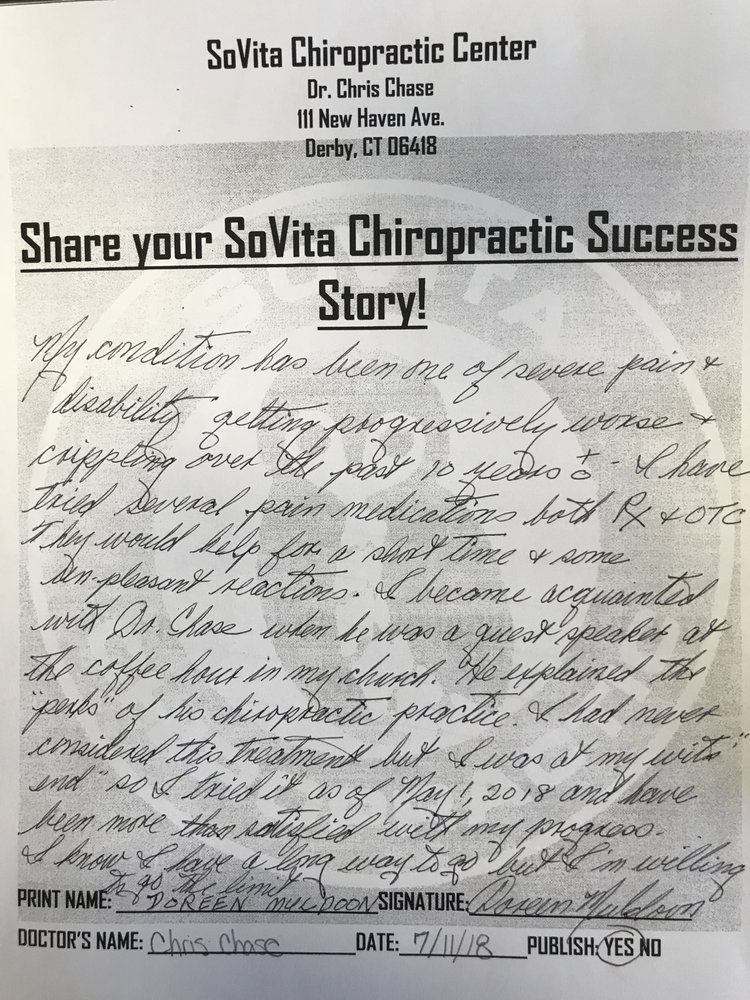 SoVita Chiropractic Center
Dr. Chris Chase
111 New Haven Ave.
Derby, CT 06418
Share your SoVita Chiropractic Success
Story!
My condition has been one of severe pain &
disability getting progressively worse &
crippling over the past 10 years ± - I have
tried several pain medications both Rx & OTC
They would help for a short time & some
un-pleasant reactions. I became acquainted
with Dr. Chase when he was a guest speaker at
the coffee hour in my church. He explained the
"perks" of his chiropractic practice. I had never
considered this treatment but I was at my wits'
end" so I tried it as of May 1, 2018 and have
been more than satisfied with my progress.
I know I have a long way to go but I'm willing
to go the limit
PRINT NAME: DOREEN MULDOON SIGNATURE: Doreen Muldoon
DOCTOR'S NAME: Chris Chase DATE: 7/11/18 PUBLISH: YES NO